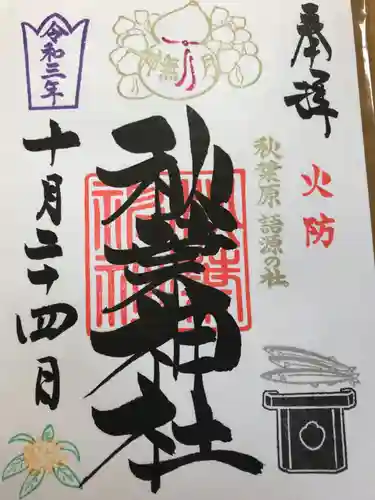 奉拝
火防
秋葉原語源の社
神無月
秋葉神社
令和三年
十月二十四日